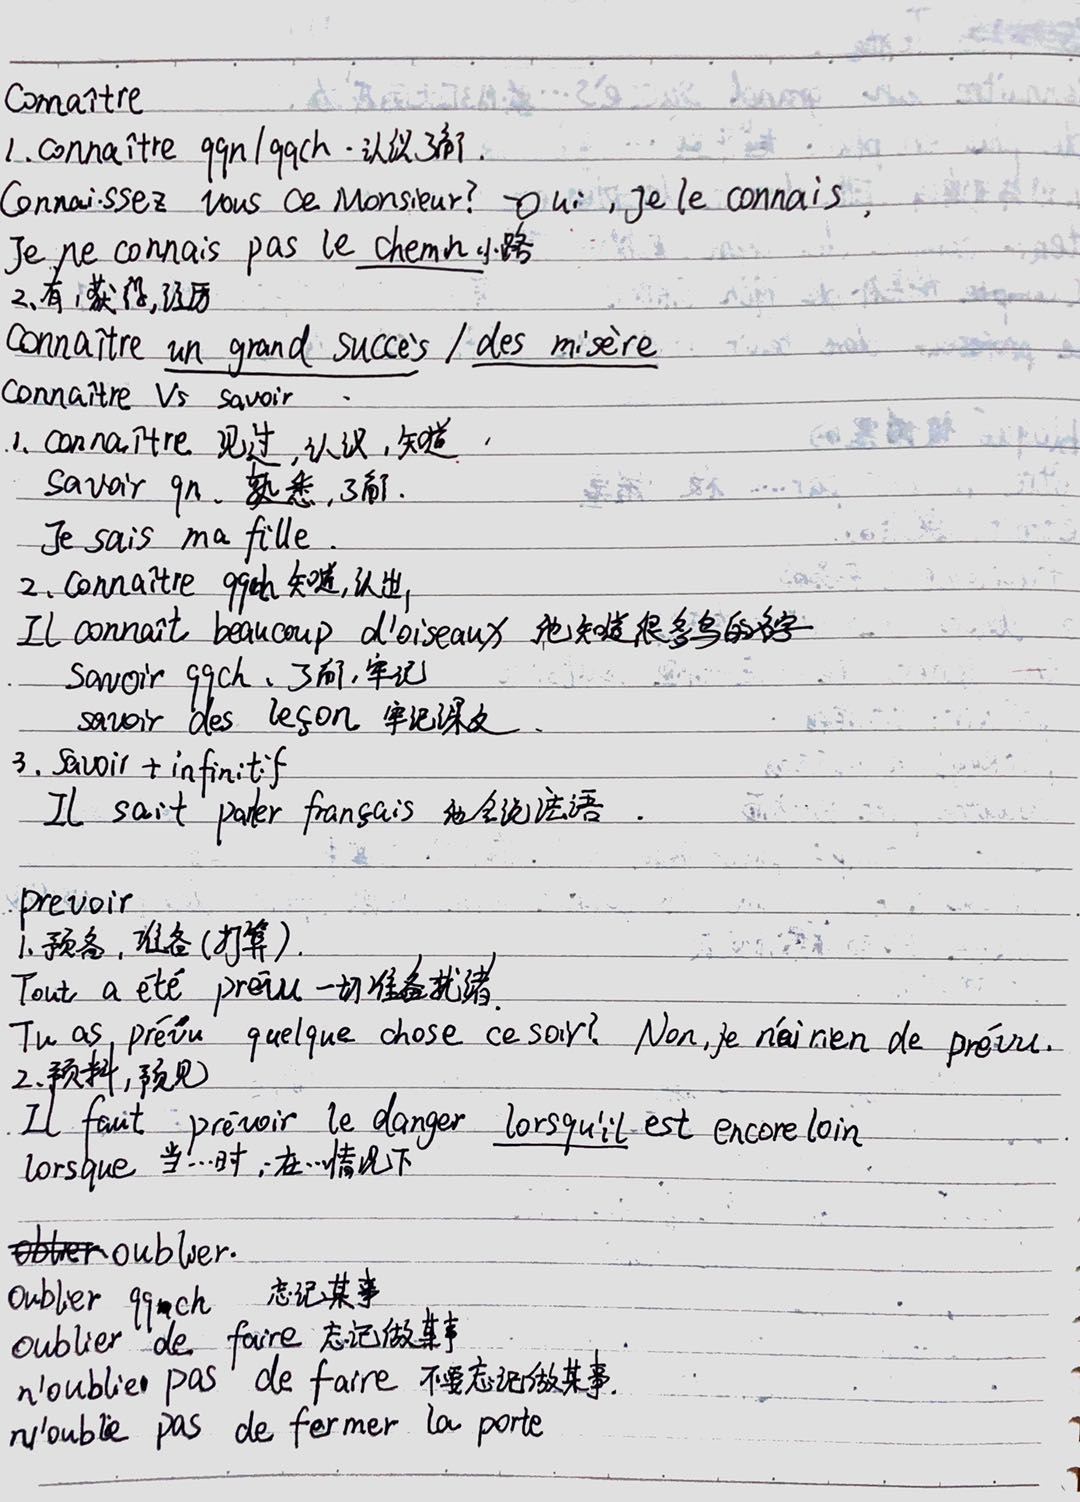 Connaître
1. connaître qqn/qqch. 认识了解.
Connaissez vous ce Monsieur? Oui, je le connais,
Je ne connais pas le chemin 小路
2、有,获得,经历
Connaître un grand succès / des misère
Connaître Vs savoir
1. connaître 见过,认识,知道
savoir qn. 熟悉,了解.
Je sais ma fille.
2、connaître qqch 知道,认出,
Il connaît beaucoup d'oiseaux 他知道很多鸟的名字
savoir qqch、了解,牢记
savoir des leçon 牢记课文.
3. savoir + infinitif
Il sait parler français 他会说法语.
prevoir
1. 预备,准备(打算).
Tout a été prévu 一切准备就绪.
Tu as prévu quelque chose ce soir? Non, je n'ai rien de prévu.
2.预料,预见
Il faut prévoir le danger lorsqu'il est encore loin
lorsque 当…时,在…情况下
oublier.
oublier qqch 忘记某事
oublier de faire 忘记做某事
n'oublie pas de faire 不要忘记做某事.
n'oublie pas de fermer la porte